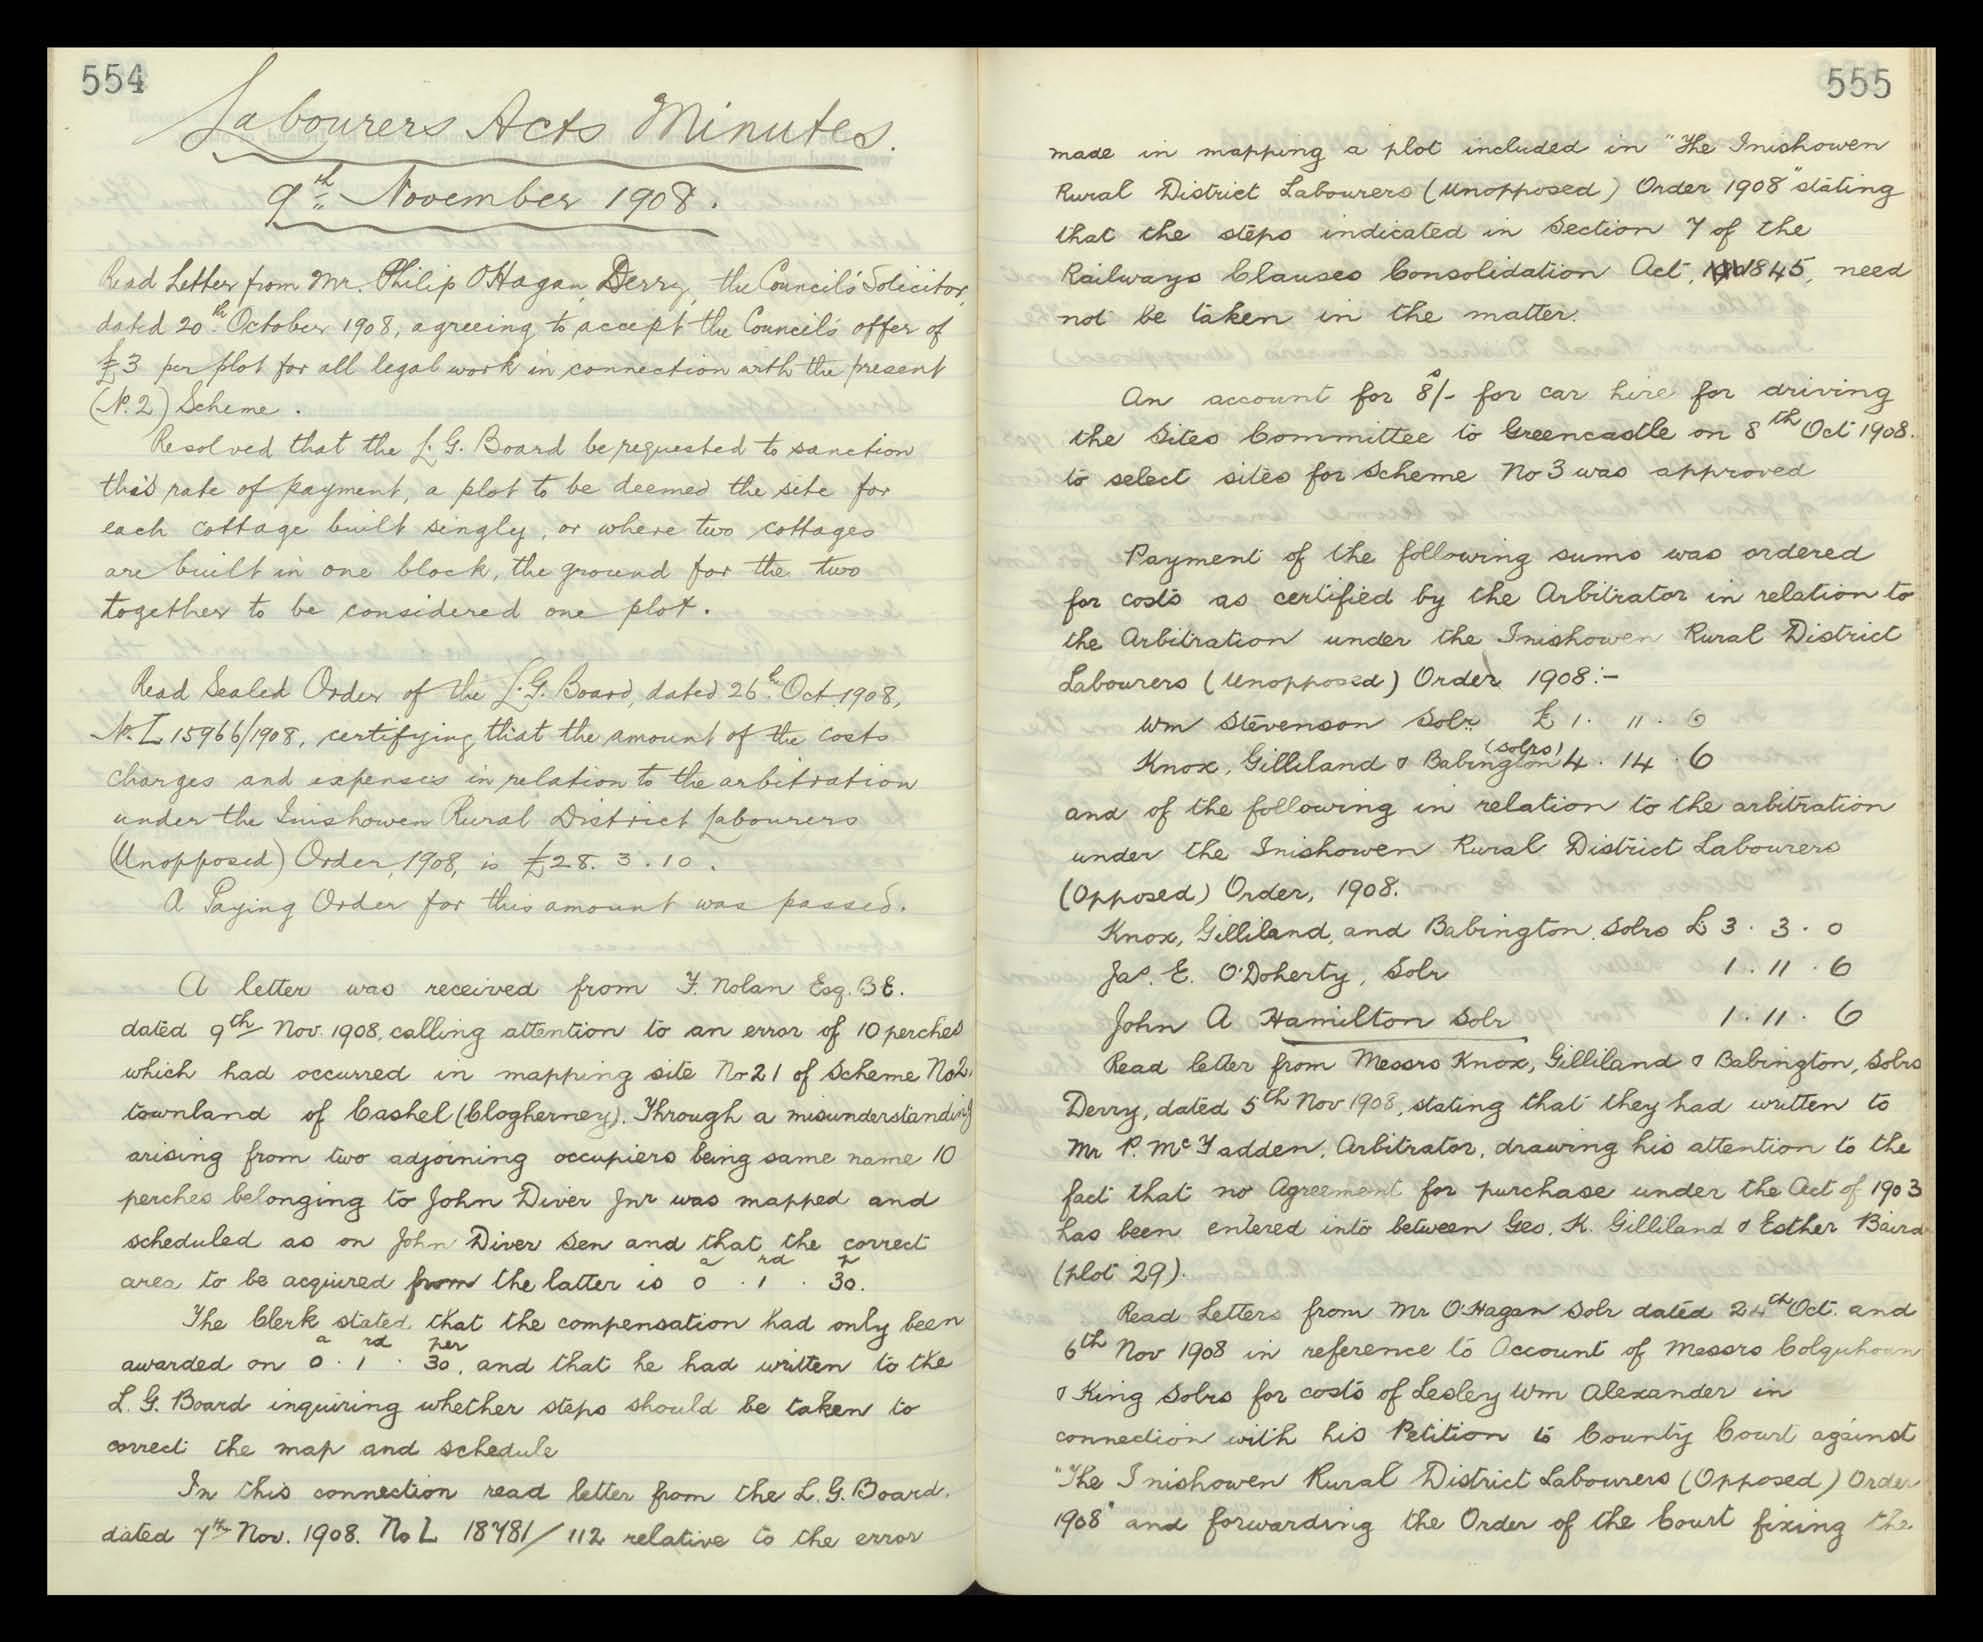 554
Labourers Acts Minutes.
9th November 1908.
Read Letter from Mr. Philip O'Hagan, Derry, the Council's Solicitor,
dated 20th October 1908, agreeing to accept the Council's offer of
£3 per plot for all legal work in connection with the present
(No. 2) Scheme.
Resolved that the L. G. Board be requested to sanction
this rate of payment, a plot to be deemed the site for
each cottage built singly, or where two cottages
are built in one block, the ground for the two
together to be considered one plot.
Read Sealed Order of the L. G. Board, dated 26th Oct. 1908,
No. L 15966/1908, certifying that the amount of the costs
charges and expenses in relation to the arbitration
under the Inishowen Rural District Labourers
(Unopposed) Order, 1908, is £28. 3. 10.
A Paying Order for this amount was passed.
A letter was received from F. Nolan Esq. B E.
dated 9th Nov. 1908, calling attention to an error of 10 perches
which had occurred in mapping site No 21 of Scheme No 2,
townland of Cashel (Clogherney). Through a misunderstanding
arising from two adjoining occupiers being same name 10
perches belonging to John Diver Jnr was mapped and
scheduled as on John Diver Sen and that the correct
area to be acquired from the latter is 0a. 1rd. 30p.
The Clerk stated that the compensation had only been
awarded on 0a. 1rd. 30per, and that he had written to the
L. G. Board inquiring whether steps should be taken to
correct the map and schedule
In this connection read letter from the L. G. Board,
dated 7th Nov. 1908. No L 18781/112 relative to the error
555
made in mapping a plot included in "The Inishowen
Rural District Labourers (Unopposed) Order 1908" stating
that the steps indicated in Section 7 of the
Railways Clauses Consolidation Act, 1845, need
not be taken in the matter.
An account for 8s/- for car hire for driving
the Sites Committee to Greencastle on 8th Oct 1908.
to select sites for Scheme No 3 was approved
Payment of the following sums was ordered
for costs as certified by the Arbitrator in relation to
the Arbitration under the Inishowen Rural District
Labourers (Unopposed) Order 1908:-
Wm Stevenson Solr. £ 1. 11. 6
Knox, Gilliland & Babington (Solrs) 4. 14. 6
and of the following in relation to the arbitration
under the Inishowen Rural District Labourers
(Opposed) Order, 1908.
Knox, Gilliland, and Babington, Solrs £ 3. 3. 0
Jas. E. O'Doherty, Solr 1. 11. 6
John A Hamilton Solr 1. 11. 6
Read letter from Messrs Knox, Gilliland & Babington, Solrs
Derry, dated 5th Nov 1908, stating that they had written to
Mr P. McFadden, Arbitrator, drawing his attention to the
fact that no Agreement for purchase under the Act of 1903
has been entered into between Geo. K. Gilliland & Esther Baird
(plot 29).
Read Letters from Mr O'Hagan Solr dated 24th Oct. and
6th Nov 1908 in reference to Account of Messrs Colquhoun
& King Solrs for costs of Lesley Wm Alexander in
connection with his Petition to County Court against
"The Inishowen Rural District Labourers (Opposed) Order
1908" and forwarding the Order of the Court fixing the